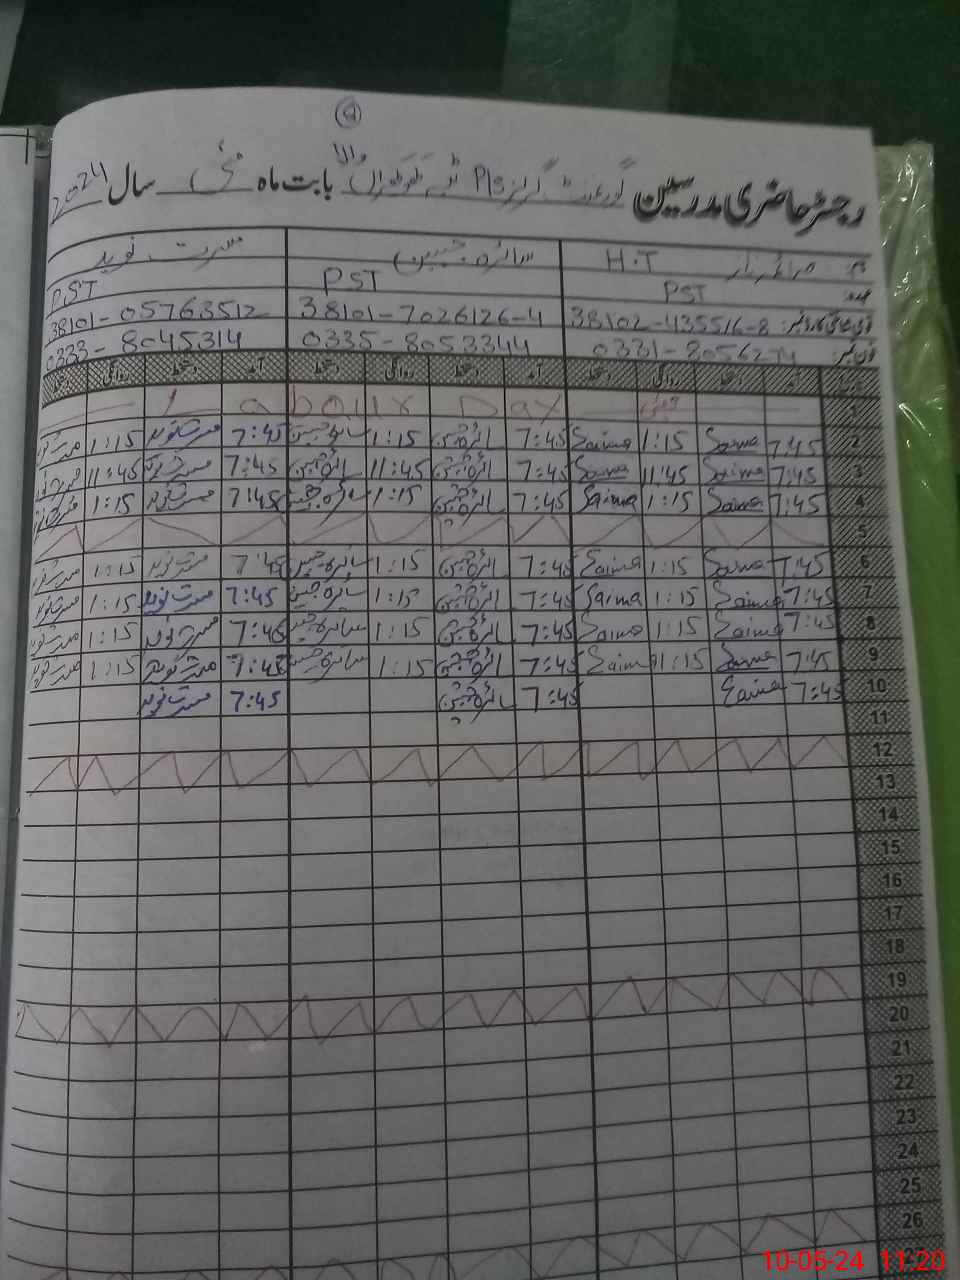 9
رجسٹر حاضری مدرسین گورنمنٹ گرلز P/s والا بابت ماہ مئی سال 2024
نام: صائمہ ناز H.T سائرہ جبین مسرت نوید
عہدہ: PST PST PST
قومی شناختی کارڈ نمبر: 38102-435516-8 38101-7026126-4 38101-05763512
فون نمبر: 0331-8056274 0335-8053344 0333-8045314
آمد دستخط روانگی دستخط آمد دستخط روانگی دستخط آمد دستخط روانگی دستخط
1 چھٹی Labour Day
2 7:45 Saima 1:15 Saima 7:45 سائرہ جبین 1:15 سائرہ جبین 7:45 مسرت نوید 1:15 مسرت نوید
3 7:45 Saima 11:45 Saima 7:45 سائرہ جبین 11:45 سائرہ جبین 7:45 مسرت نوید 11:45 مسرت نوید
4 7:45 Saima 1:15 Saima 7:45 سائرہ جبین 1:15 سائرہ جبین 7:45 مسرت نوید 1:15 مسرت نوید
5
6 7:45 Saima 1:15 Saima 7:45 سائرہ جبین 1:15 سائرہ جبین 7:45 مسرت نوید 1:15 مسرت نوید
7 7:45 Saima 1:15 Saima 7:45 سائرہ جبین 1:15 سائرہ جبین 7:45 مسرت نوید 1:15 مسرت نوید
8 7:45 Saima 1:15 Saima 7:45 سائرہ جبین 1:15 سائرہ جبین 7:45 مسرت نوید 1:15 مسرت نوید
9 7:45 Saima 1:15 Saima 7:45 سائرہ جبین 1:15 سائرہ جبین 7:45 مسرت نوید 1:15 مسرت نوید
10 7:45 Saima 7:45 سائرہ جبین 7:45 مسرت نوید
11
12
13
14
15
16
17
18
19
20
21
22
23
24
25
26
10-05-24 11:20